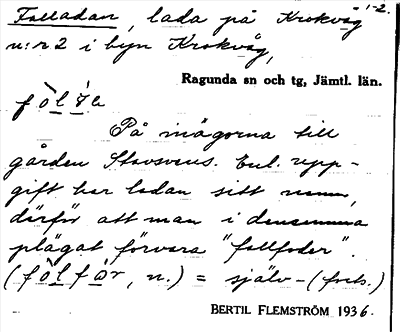 Falladan, lada på Krokvåg 1-2.
n:r 2 i byn Krokvåg,
Ragunda sn och tg, Jämtl. län.
På inägorna till
gården Stavsvens. Enl. upp-
gift har ladan sitt namn,
därför att man i densamma
plägat förvara "fallfoder".
(fòlfòr, n.) = själv-(forts.)
BERTIL FLEMSTRÖM 1936.